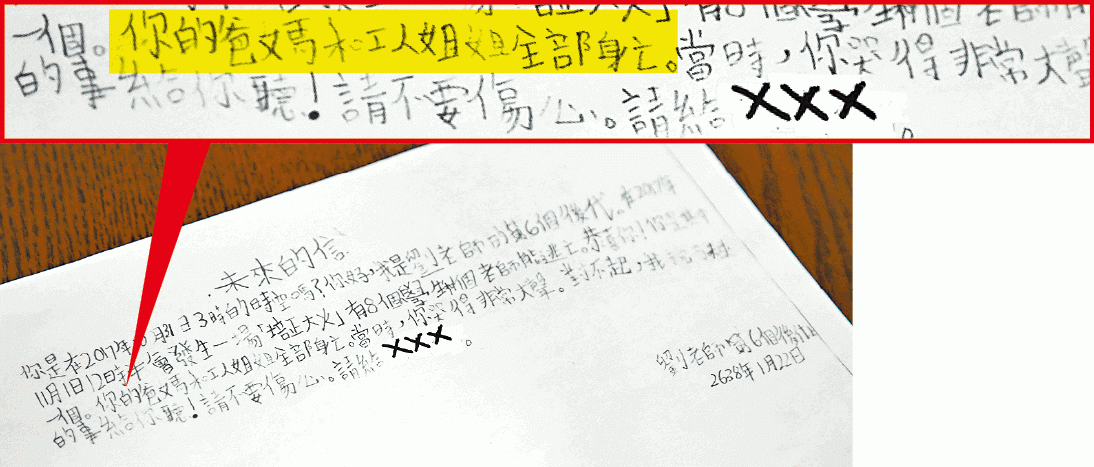 一個。你的爸媽和工人姐姐全部身亡。當時，你哭得非常大聲
的事給你聽！請不要傷心。請給XXX。
未來的信
你是在2017年10月31日3時的時空嗎？你好，我是劉老師的第6個後代。在2017年
11月1日12時半會發生一場「培正大火」有8個學生和1個老師能逃亡。恭喜你！你是其中
一個。你的爸媽和工人姐姐全部身亡。當時，你哭得非常大聲。對不起，我
的事給你聽！請不要傷心。請給XXX。
劉老師第6個後代
2638年1月22日